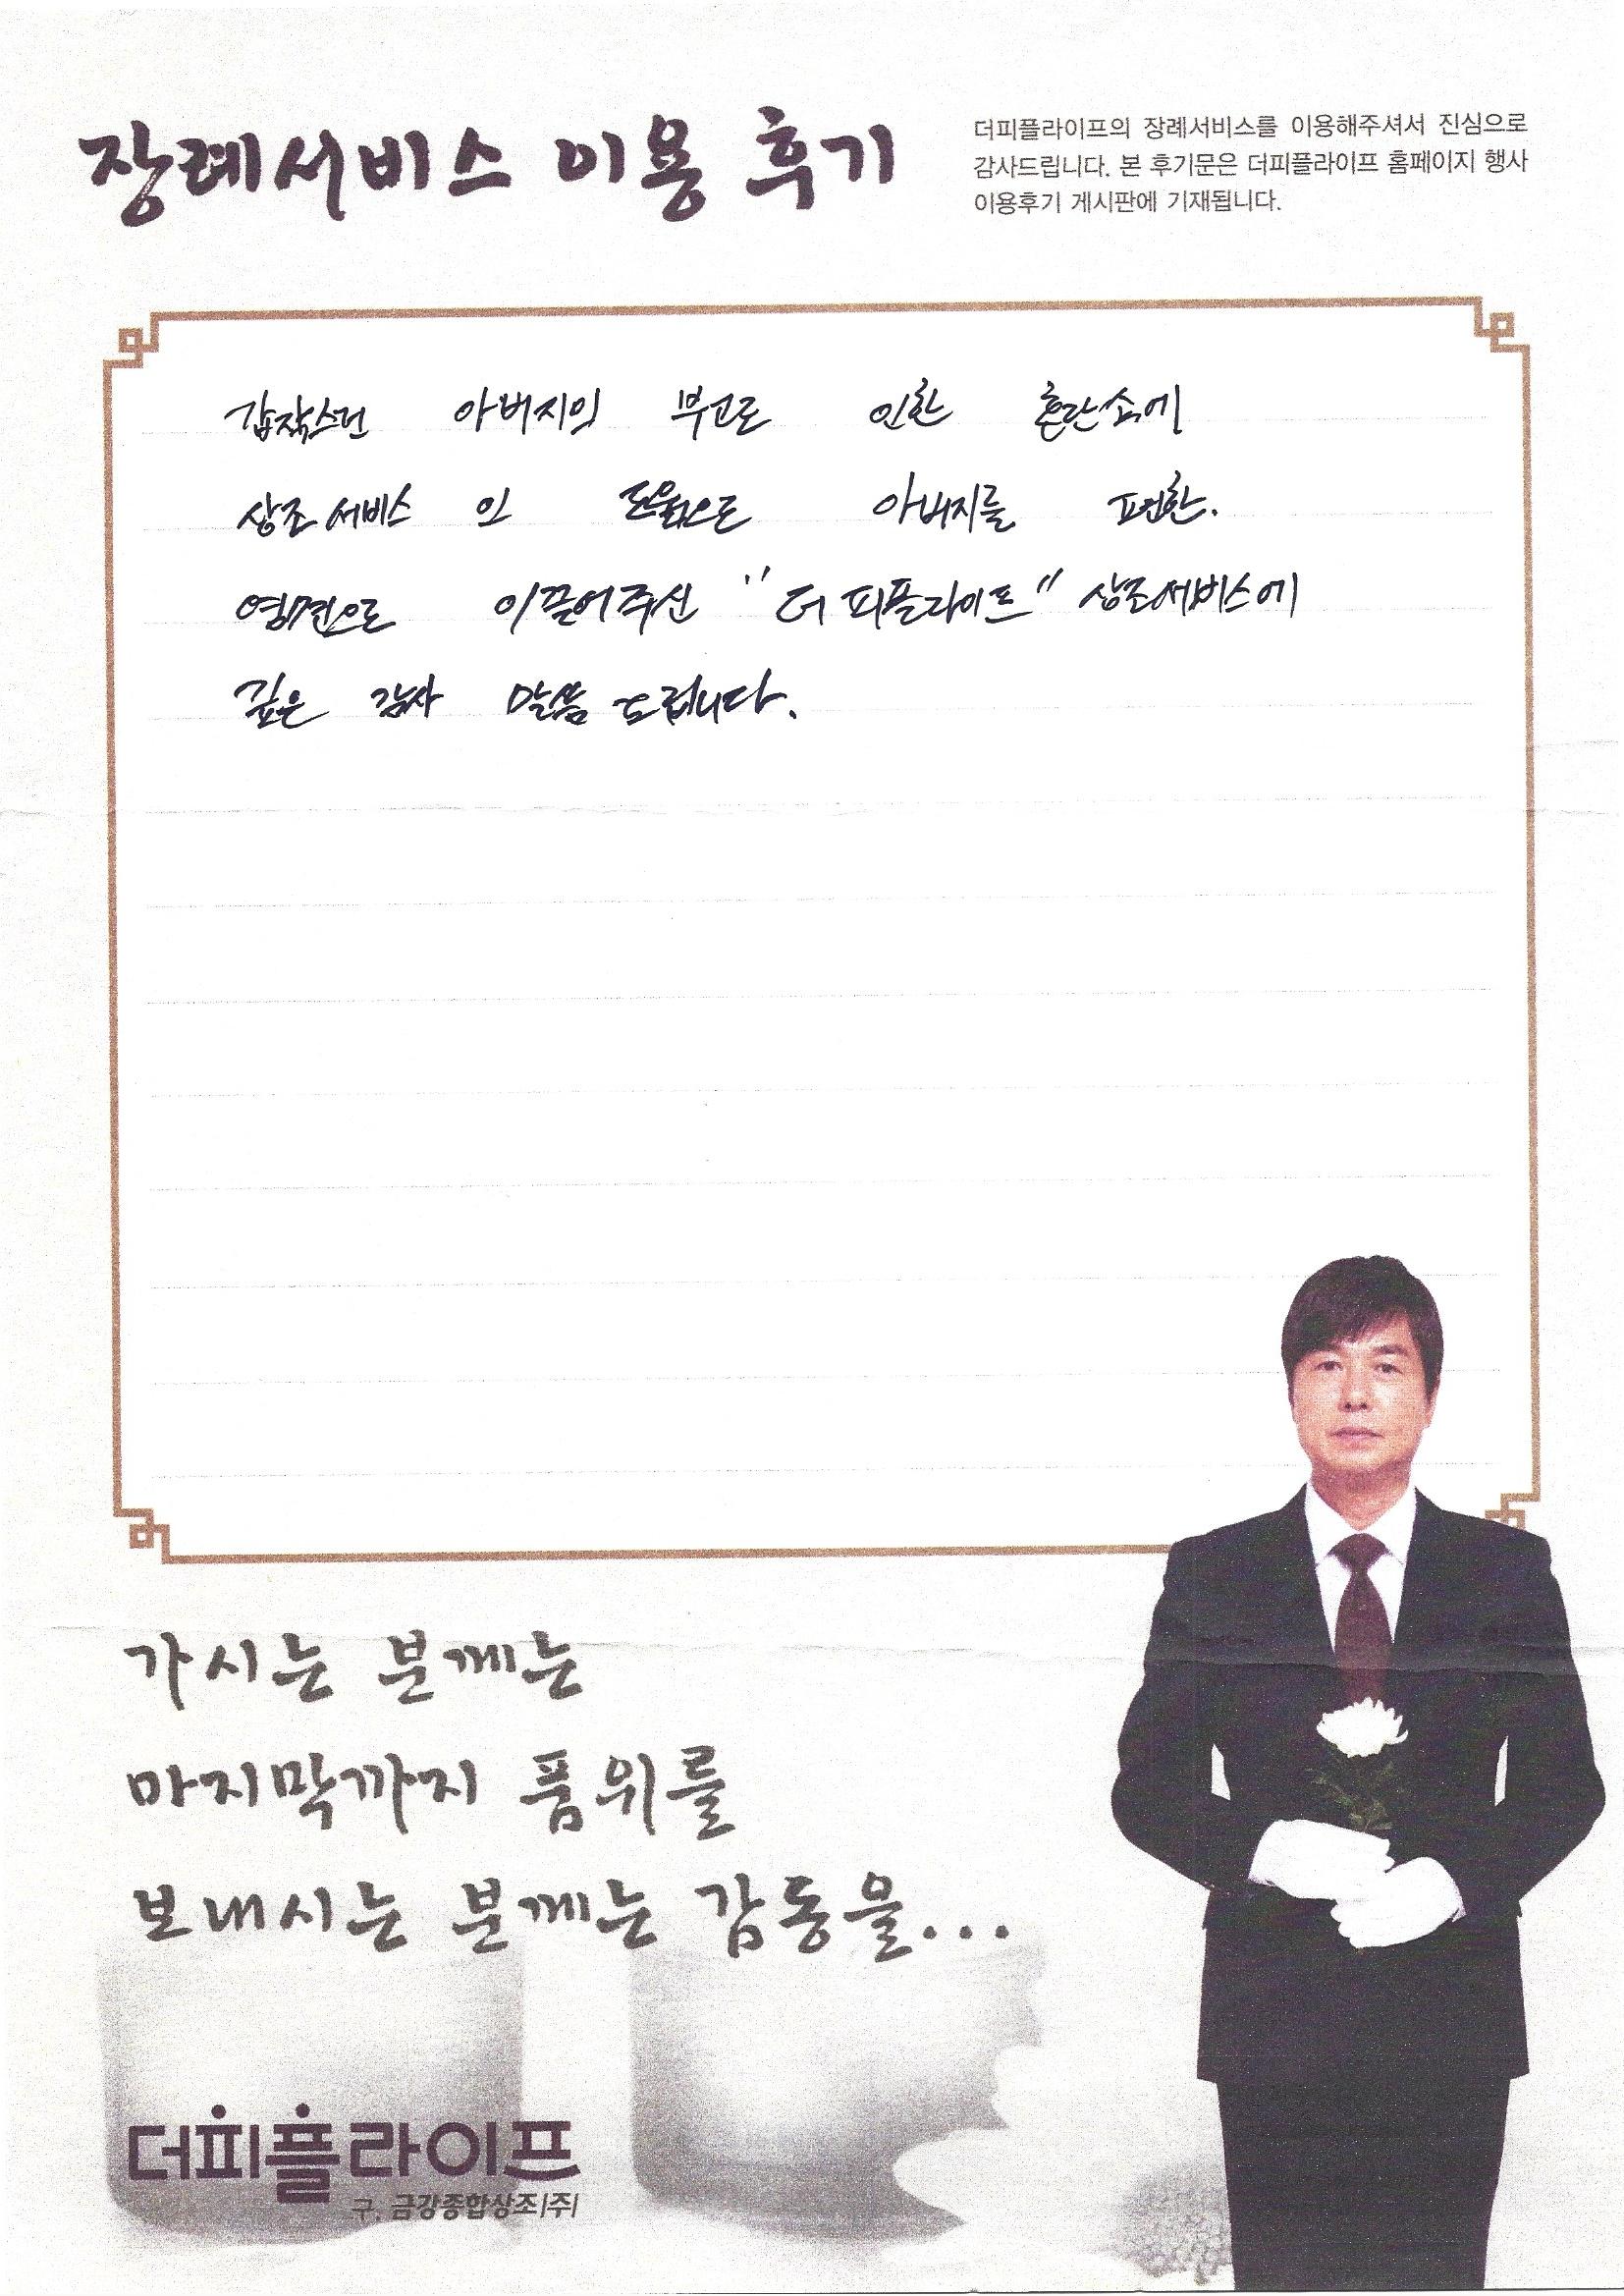 장례서비스 이용 후기
더피플라이프의 장례서비스를 이용해주셔서 진심으로
감사드립니다. 본 후기문은 더피플라이프 홈페이지 행사
이용후기 게시판에 기재됩니다.
갑작스런 아버지의 부고로 인한 혼란속에
상조서비스 의 도움으로 아버지를 편한.
영면으로 이끌어주신 "더피플라이프" 상조서비스에
깊은 감사 말씀 드립니다.
가시는 분께는
마지막까지 품위를
보내시는 분께는 감동을...
더피플라이프
구. 금강종합상조(주)